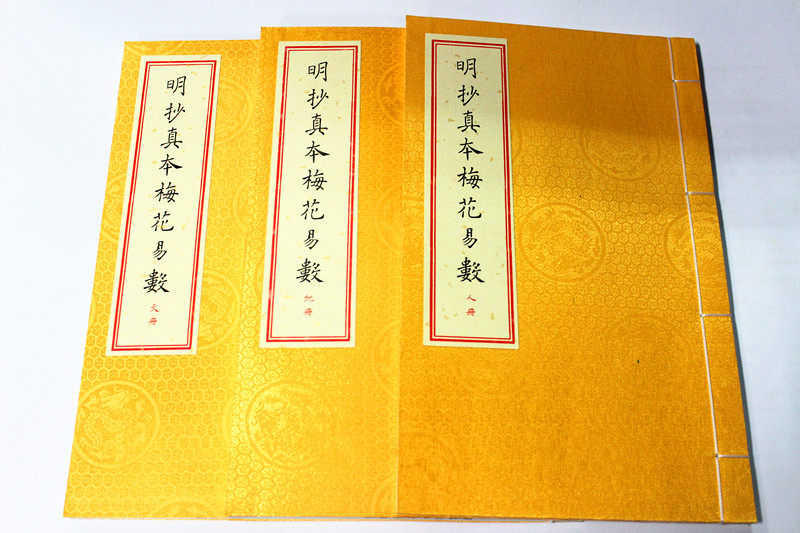 明抄真本梅花易數
天冊
明抄真本梅花易數
地冊
明抄真本梅花易數
人冊